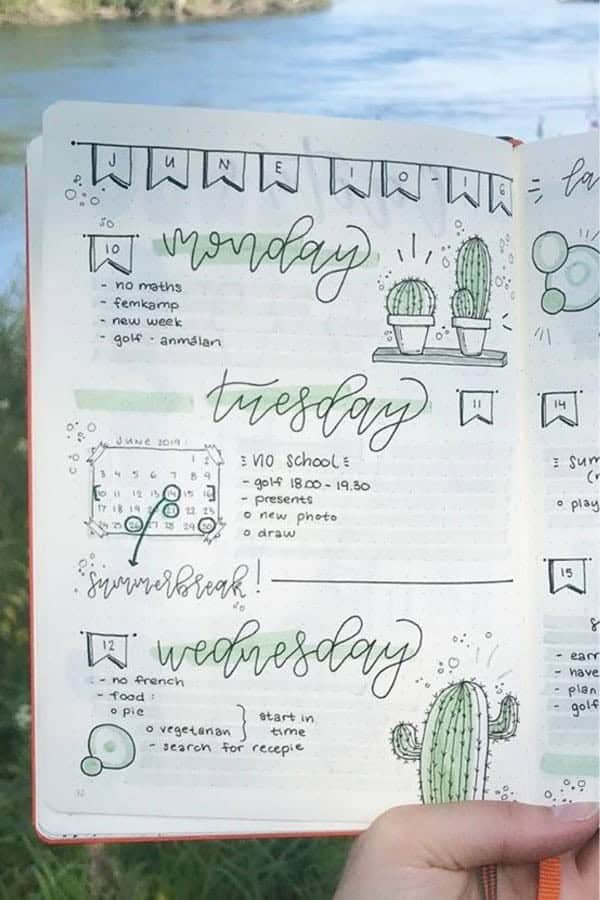 JUNE 10-16
10 monday
- no maths
- femkamp
- new week
- golf - anmälan
tuesday 11
JUNE 2019
1 2
3 4 5 6 7 8 9
10 11 12 13 14 15 16
17 18 19 20 21 22 23
24 25 26 27 28 29 30
NO SCHOOL
- golf 18.00 - 19.30
- presents
o new photo
o draw
summerbreak!
12 wednesday
- no french
- food :
o pie
o vegetarian
start in
time
- search for recepie
la
14
sum
o play
15
- earn
- have
- plan
- golf